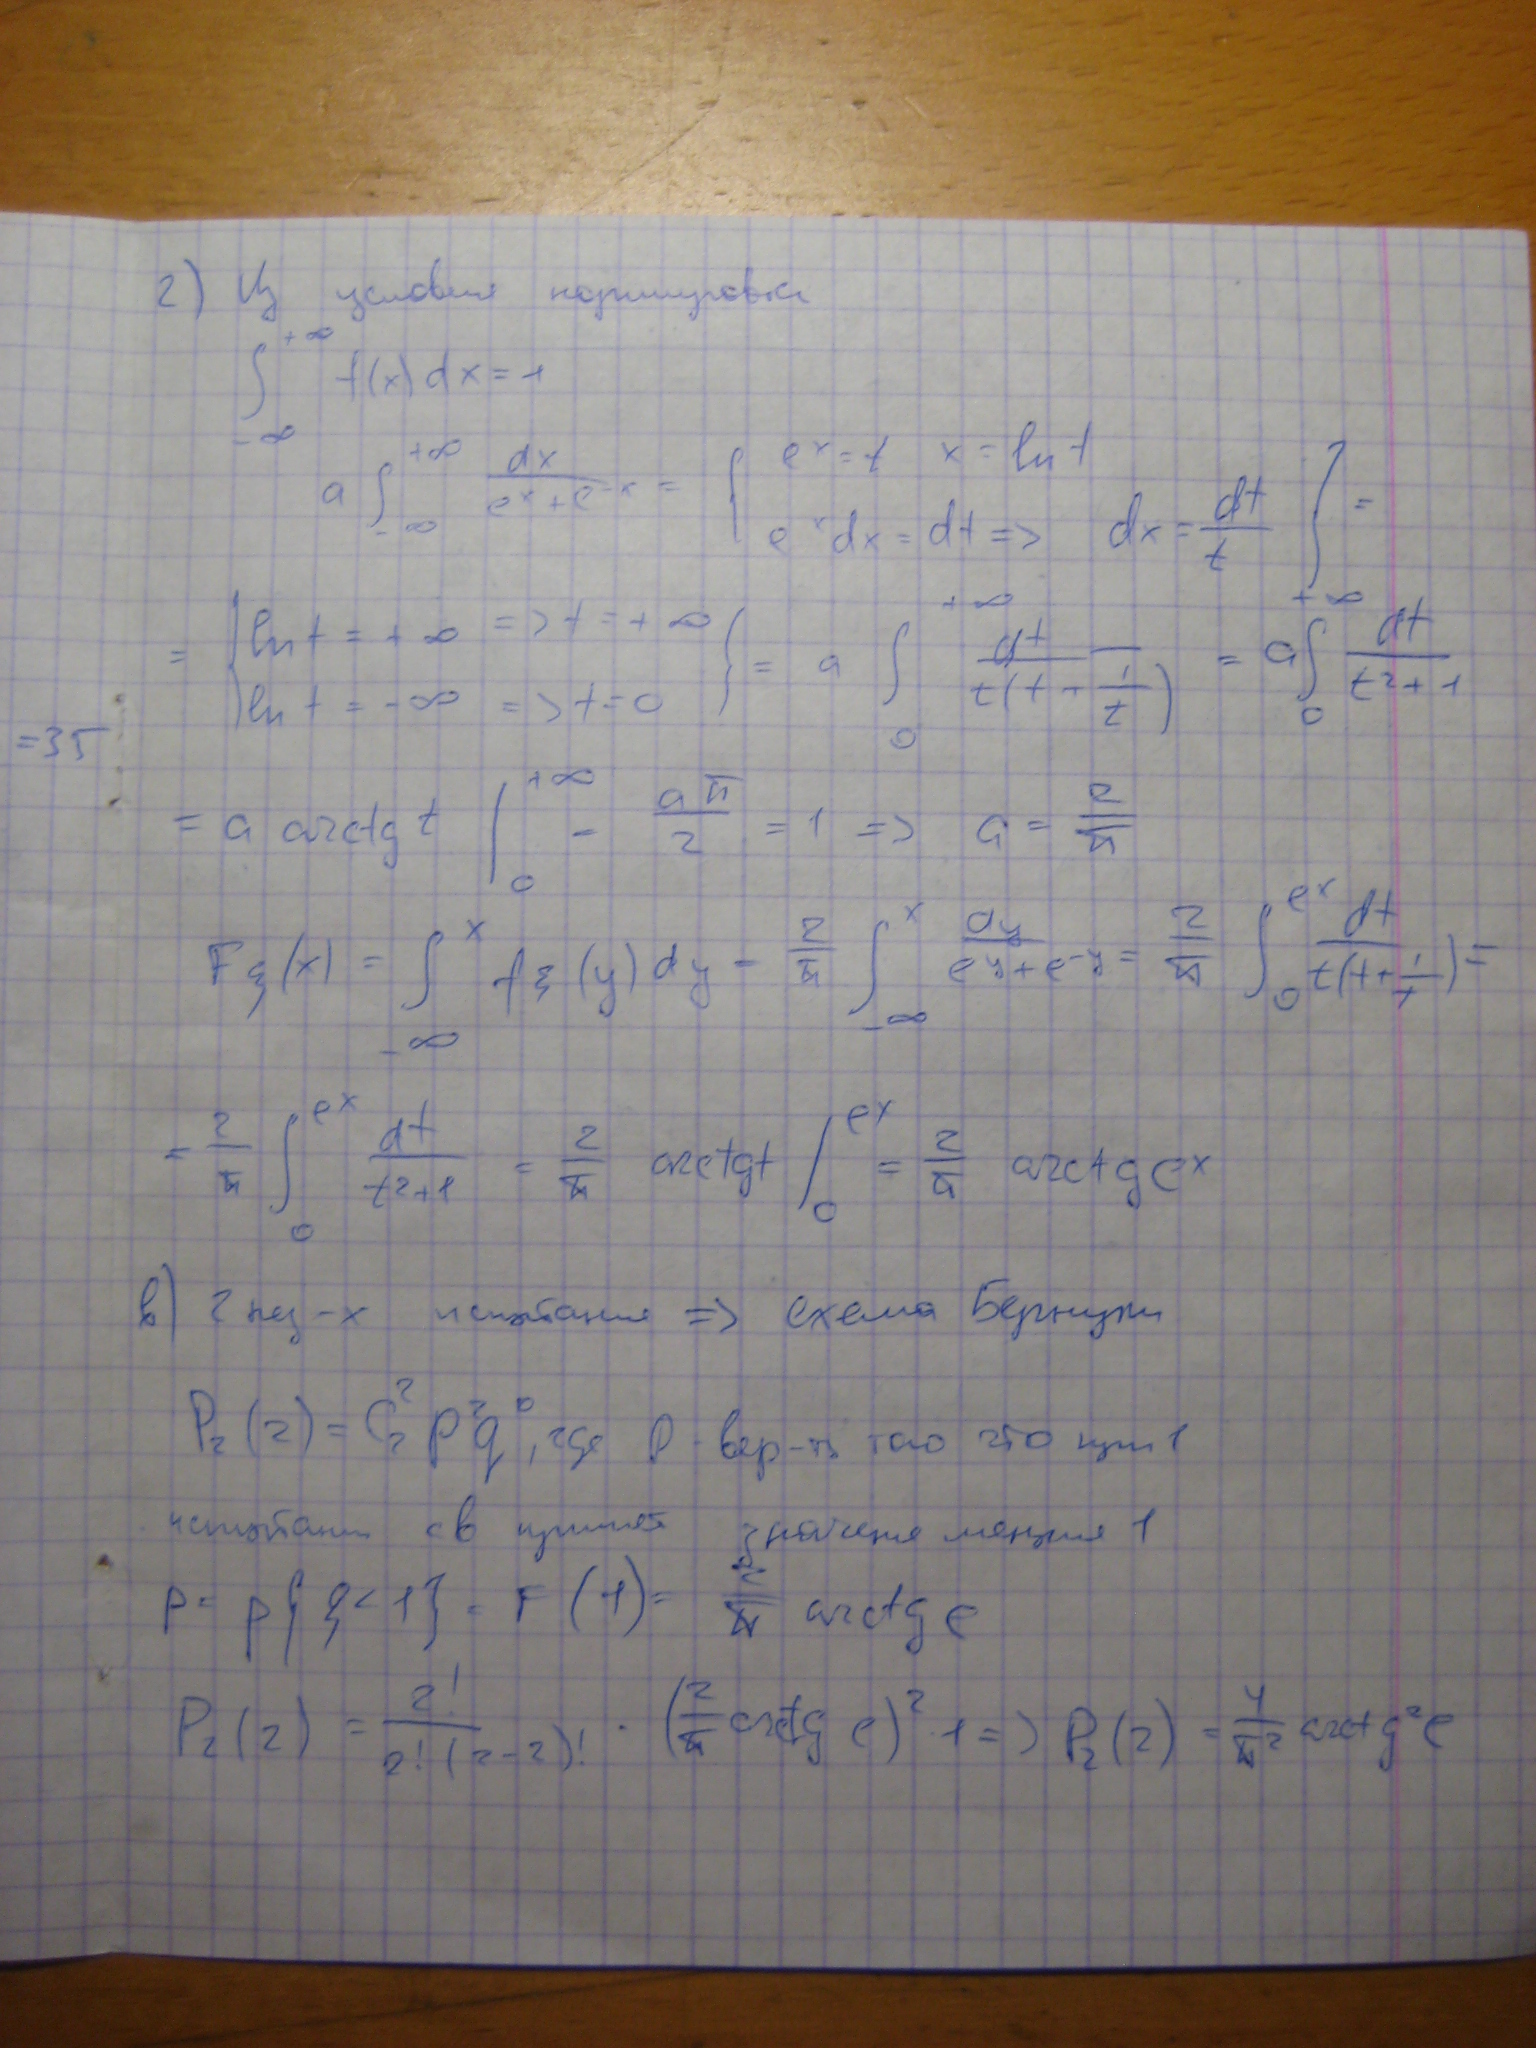 2) Из условия нормировки
∫_{-∞}^{+∞} f(x)dx = 1
a ∫_{-∞}^{+∞} dx/(e^x + e^{-x}) = { e^x = t x = ln t e^x dx = dt => dx = dt/t } =
= { ln t = +∞ => t = +∞ ln t = -∞ => t = 0 } = a ∫_0^{+∞} dt/(t(t + 1/t)) = a ∫_0^{+∞} dt/(t² + 1)
=35
= a arctg t |_0^{+∞} = aπ/2 = 1 => a = 2/π
F_ξ(x) = ∫_{-∞}^x f_ξ(y)dy = 2/π ∫_{-∞}^x dy/(e^y + e^{-y}) = 2/π ∫_0^{e^x} dt/(t(t + 1/t)) =
= 2/π ∫_0^{e^x} dt/(t²+1) = 2/π arctg t |_0^{e^x} = 2/π arctg e^x
в) 2 нез-х испытания => схема Бернулли
P₂(2) = C₂² p² q⁰, где p - вер-ть того что при 1
испытании св примет значение меньшее 1
p = p{ξ < 1} = F(1) = 2/π arctg e
P₂(2) = 2!/(2!(2-2)!) · (2/π arctg e)² · 1 => P₂(2) = 4/π² arctg² e